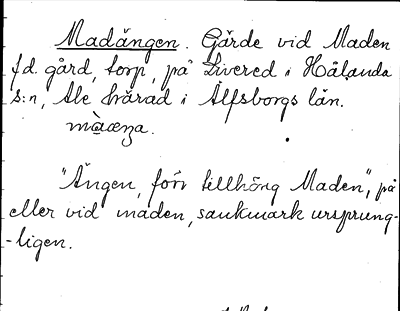 Madängen. Gärde vid Maden
f.d. gård, torp, på Livered i Hålanda
s:n, Ale härad i Älfsborgs län.
"Ängen, förr tillhörig Maden", på
eller vid maden, sankmark ursprung-
-ligen.